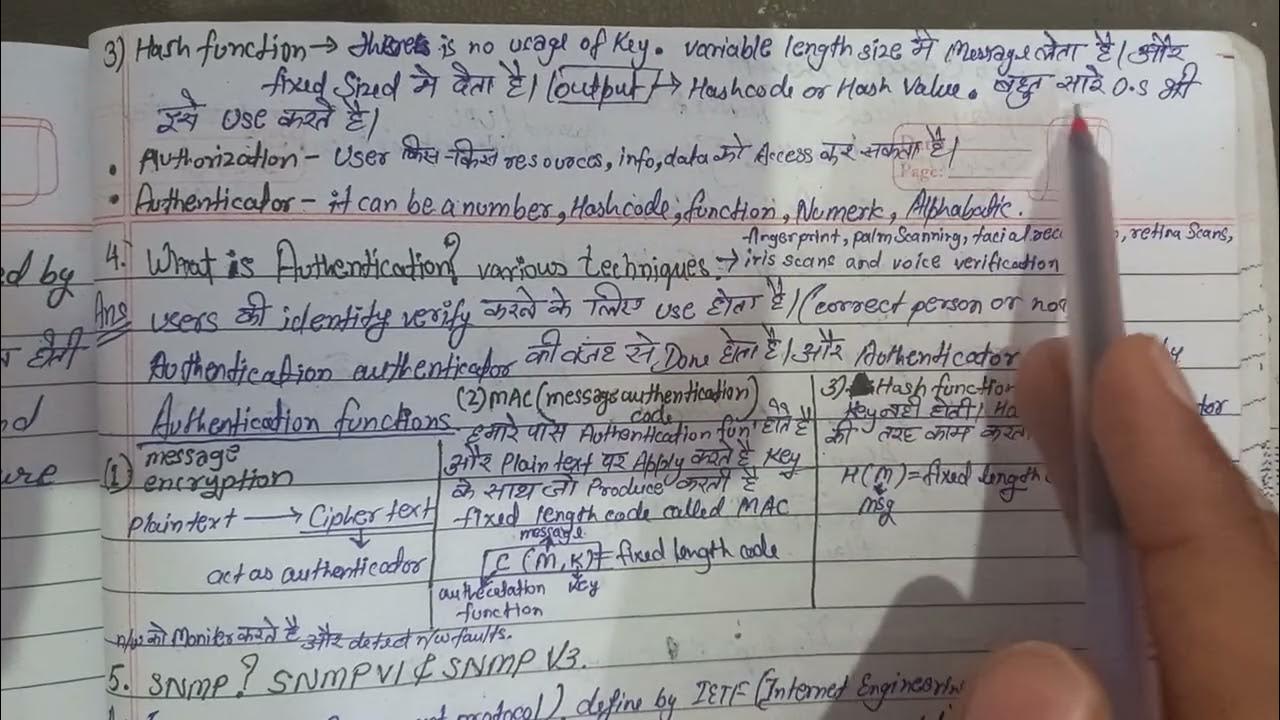 3) Hash function → there is no usage of Key. variable length size में Message लेता है। और
fixed Sized में देता है। (output) → Hashcode or Hash Value. बहुत सारे O.S भी
इसे use करते है।
Page:
• Authorization - User किस-किस resources, info, data को Access कर सकता है।
• Authenticator - it can be a number, Hashcode, function, Numerk, Alphabadic.
fingerprint, palm Scanning, facial, retina Scans,
4. What is Authentication? various techniques. → iris scans and voice verification
ed by
Ans users की identity verify करने के लिए use होता है। (correct person or not
होती
Authentication authenticator की वजह से Done होता है। और Authenticator
nd
Authentication functions.
ure
(1) message
encryption
Plaintext → Ciphertext
act as authenticator
(2) MAC (message authentication
code)
हमारे पास Authentication fun होते है
और Plain text पर Apply करते है Key
के साथ जो Produce करती है
fixed length code called MAC
message
C (M, K) = fixed length code
authecatation key
function
3) Hash function
Key नही होती। Ha
की तरह काम करता
H(M) = fixed length
msg
tor
n/w को Moniter करते है और detect n/w faults.
5. SNMP? SNMP V1 & SNMP V3.
protocol) define by IETF (Internet Engineerin